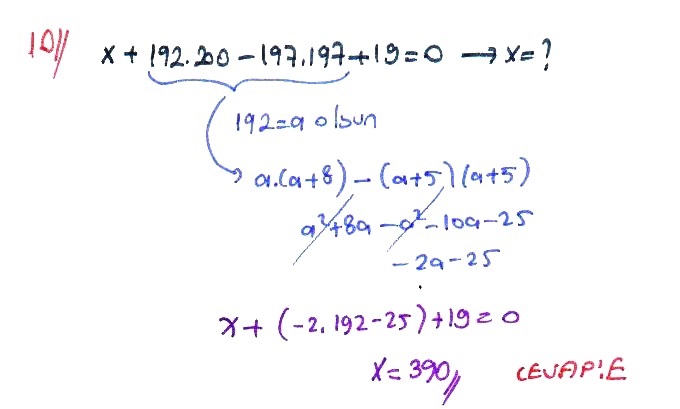 10// x + 192.200 - 197.197 + 19 = 0 → x = ?
192 = a olsun
a.(a+8) - (a+5)(a+5)
a²+8a - a² - 10a - 25
- 2a - 25
x + (-2.192 - 25) + 19 = 0
x = 390//
CEVAP: E